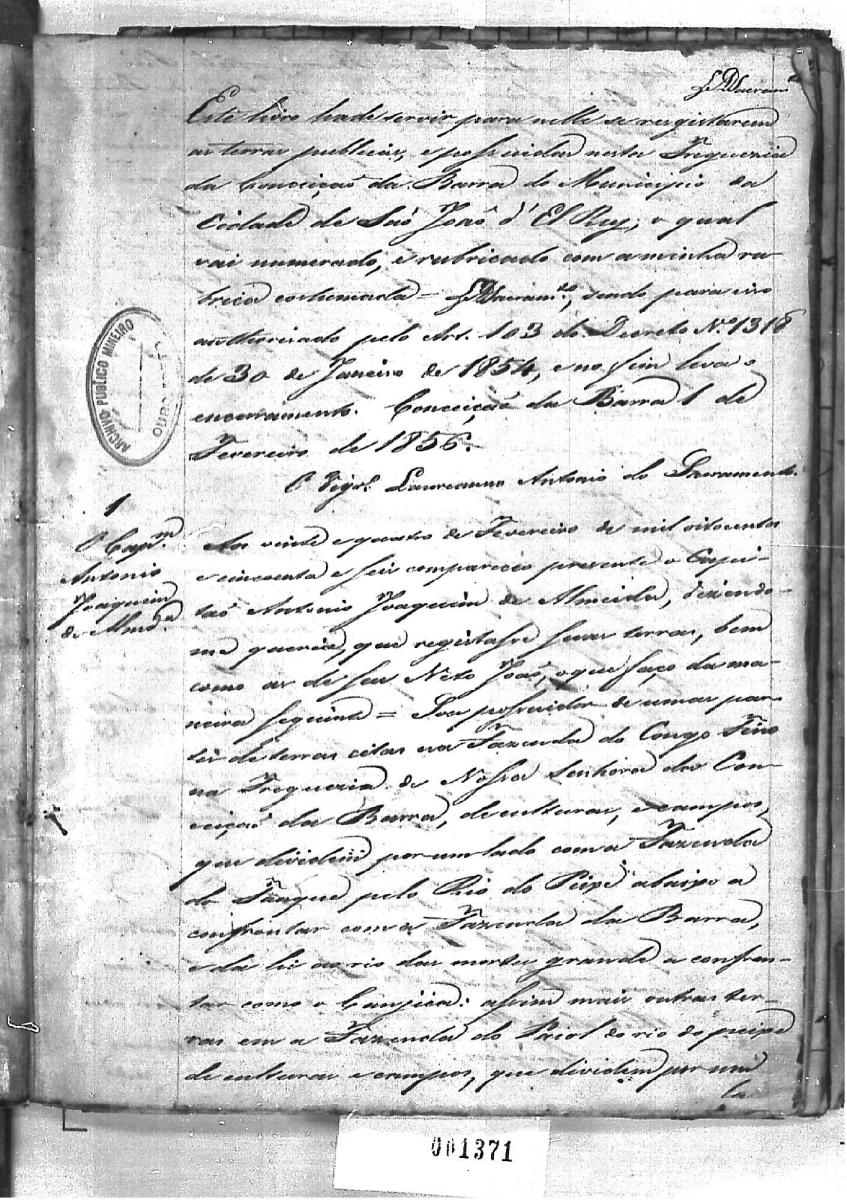 Este livro hade servir para nelle se registarem
as terras publicas, e possuidas nesta Freguezia
da Conceiçaõ da Barra do Municipio da
Cidade de Saõ Joaõ d'El Rey, o qual
vai numerado, e rubricado com a minha ru-
brica costumada = Sacram.to, sendo para isso
authorisado pelo Art. 103 do Decreto Nº 1318
de 30 de Janeiro de 1854, e no fim leva o
encerramento. Conceiçaõ da Barra 1 de
Fevereiro de 1856.
O Vigr.o Laureanno Antonio do Sacramento.
ARCHIVO PUBLICO MINEIRO
OURO PRETO
1
O Cap.m
Antonio
Joaquim
de Almd.a
Aos vinte e quatro de Fevereiro de mil oitocentos
e cincoenta e seis compareceo presente o Capi-
taõ Antonio Joaquim de Almeida, dizendo-
me queria, que registasse suas terras, bem
como as de seu Neto Joaõ, o que faço da ma-
neira seguinte = Sou possuidor de umas par-
tes de terras citas na Fazenda do Congo Fino
na Freguezia de Nossa Senhora da Con-
ceiçaõ da Barra, de culturas, e campos,
que dividem por um lado com a Fazenda
do Tanque pelo Rio do Peixe abaixo a
confrontar com a Fazenda da Barra,
e da li ao rio das mortes grande a confron-
tar com o Canjica: assim mais outras ter-
ras em a Fazenda do Paiol do rio do peixe
de culturas e campos, que dividem por um
la
001371